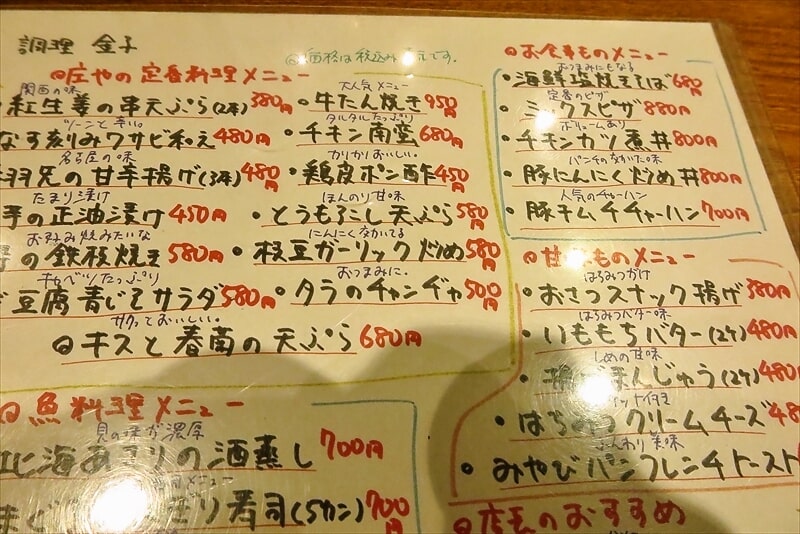 調理 金子
庄やの定番料理メニュー
関西の味
紅生姜の串天ぷら(2本) 380円
ツーンと辛い。
なす刻みワサビ和え 480円
名古屋の味
羽先の甘辛揚げ(3本) 480円
たまり漬け
の正油漬け 450円
お好み焼みたいな
の鉄板焼き 580円
キャベツたっぷり
豆腐青じそサラダ 580円
サクッとおいしい。
キスと春菊の天ぷら 680円
価格は税込み です。
大人気メニュー
・牛たん焼き 950円
タルタルたっぷり
・チキン南蛮 680円
かりかりおいしい。
・鶏皮ポン酢 450円
ほんのり甘味
・とうもろこし天ぷら 580円
にんにく効いてる
・枝豆ガーリック炒め 580円
おつまみに。
・タラのチャンヂャ 500円
お食事ものメニュー
おつまみにもなる
・海鮮塩焼きそば 680円
定番のピザ
・ミックスピザ 880円
ボリュームあり
・チキンカツ煮丼 800円
パンチの効いた味
・豚にんにく炒め丼 800円
人気のチャーハン
・豚キムチチャーハン 700円
甘いものメニュー
はちみつがけ
・おさつスナック揚げ 380円
はちみつバター味
・いももちバター(2ケ) 480円
しめの甘味
・揚げまんじゅう(2ケ) 480円
・はちみつクリームチーズ 48
ふんわり美味
・みやびパンフレンチトースト
店長のおすすめ
魚料理メニュー
貝の味が濃厚
北海あさりの酒蒸し 700円
メニュー
まぐ ぎり寿司(5カン) 700円